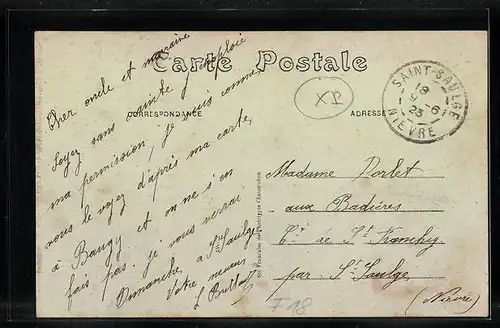 Carte Postale
CORRESPONDANCE
ADRESSE
Cher oncle et marraine
Soyez sans crainte j'emploie
ma permission, je suis comme
vous le voyez d'après ma carte,
à Baugy et on ne s'en
fait pas. je vous verrai
Dimanche, à St Saulge
Votre neveu
SAINT-SAULGE
18
9 - 6
23
NIEVRE
XP
Madame Dorlet
aux Badières
Cne de St Franchy
par St Saulge
(Nièvre)
F 18